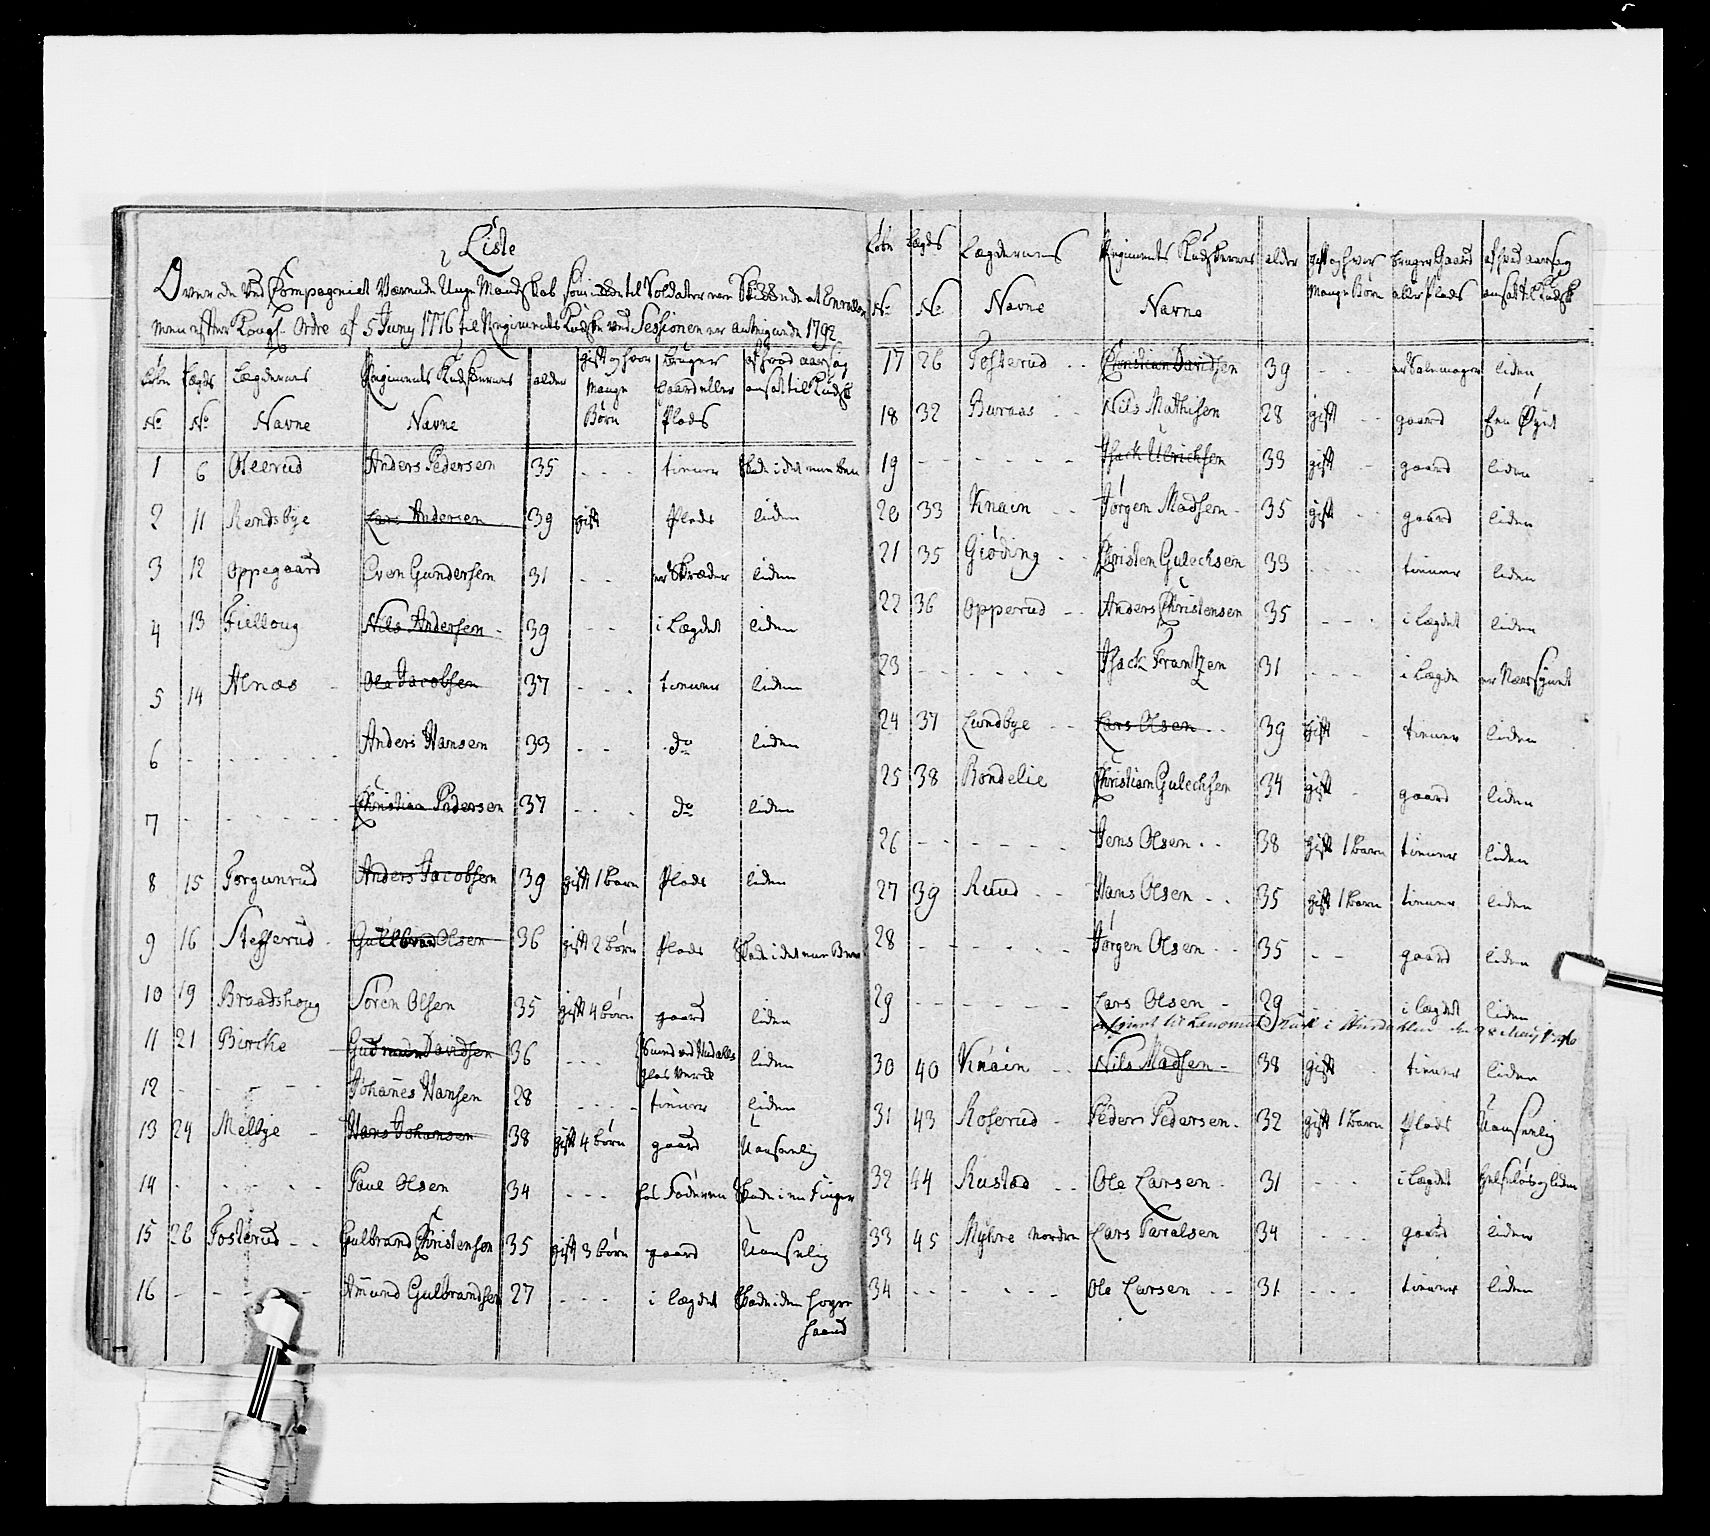 Liste
Over de ved Compagniet Værende Unge Mandskab som til Soldater er at
men efter Kongl. Ordre af 5 Juny 1776 til Regiments Kudske ved Sessionen er antegnede 1792
Løbe Lægds Lægdernes Regiments Kudskernes alder gift og hvor bruger af hvad aarsag
Mange gaard eller ansat til Kudsk
No No Navne Navne Børn Plads
1 6 Oleerud Anders Pedersen 35 - - tiener Skade i det eene Been
2 11 Rendsbye Lars Andersen 39 gift Plads liden
3 12 Oppegaard Even Gundersen 31 - - er Skræder liden
4 13 Fielloug Nils Andersen - 39 - - i Lægdet liden
5 14 Alnæs - Ole Jacobsen 37 - - - tiener liden
6 - - - - - - Anders Hansen 33 - - do liden
7 - - - - - - Christian Pedersen 37 - - - do liden
8 15 Torgunrud Anders Jacobsen 39 gift 1 barn Plads liden
9 16 Stefferud - Gulbrand Olsen 36 gift 2 børn Plads Skade i det eene Been
10 19 Braadshoug Sören Olsen 35 gift 4 børn gaard liden
11 21 Bircke Gudmun Davidsen 36 - - - liden
Glas Verck
12 - - - - - Johannes Hansen 28 - - - - tiener liden
13 24 Melbye - Hans Johansen 38 gift 4 børn gaard Uanseelig
14 - - - - - Paul Olsen 34 - - - hos Faderen Skade i en Finger
15 26 Fosterud - - Gulbrand Christensen 35 gift 3 børn gaard Uanselig
16 - - - - - Amund Gulbrandsen 27 - - - i lægdet Skade i den høyre
haand
Løbe Lægds Lægdernes Regiments Kudskernes alder gift og hvor bruger Gaard af hvad aarsag
mange Børn eller Plads ansat til Kudsk
No No Navne Navne
17 26 Fosterud - - Christian Davidsen 39 - - er liden
18 32 Buraas - - Nils Mathisen 28 gift - - gaard Een Øyet
19 - - - - - - Isack Ulrichsen 33 gift - gaard liden
20 33 Knain - - Jørgen Madsen - 35 gift - - gaard liden
21 35 Giøding - - Christen Gulechsen 33 - - - - tiener liden
22 36 Opperud - - Anders Christensen 35 - - - i lægdet liden
23 - - - - - - Isack Frantzen 31 - - - i Lægde er Nærsynet
24 37 Lundbye - - Lars Olsen - - 39 gift - tiener liden
25 38 Bondelie Christian Gulechsen 34 gift - gaard liden
26 - - - - - - Jens Olsen - - 38 gift 1 barn tiener liden
27 39 Ruud - - Hans Olsen - - 35 gift 1 barn tiener liden
28 - - - - - - Jørgen Olsen - - 35 - - gaard liden
29 - - - - - - Lars Olsen - 29 - i lægdet liden
30 40 Knain - - Nils Madsen - 38 gift - tiener liden
31 43 Roserud - Peder Pedersen - 32 gift 1 barn Plads Uanseelig
32 44 Rustad - - Ole Larsen - 31 - - - i Lægdet og liden
33 45 Myhre nordre Lars Taralsen 34 - - - gaard liden
34 - - - - - Ole Larsen - - 31 - - - tiener liden